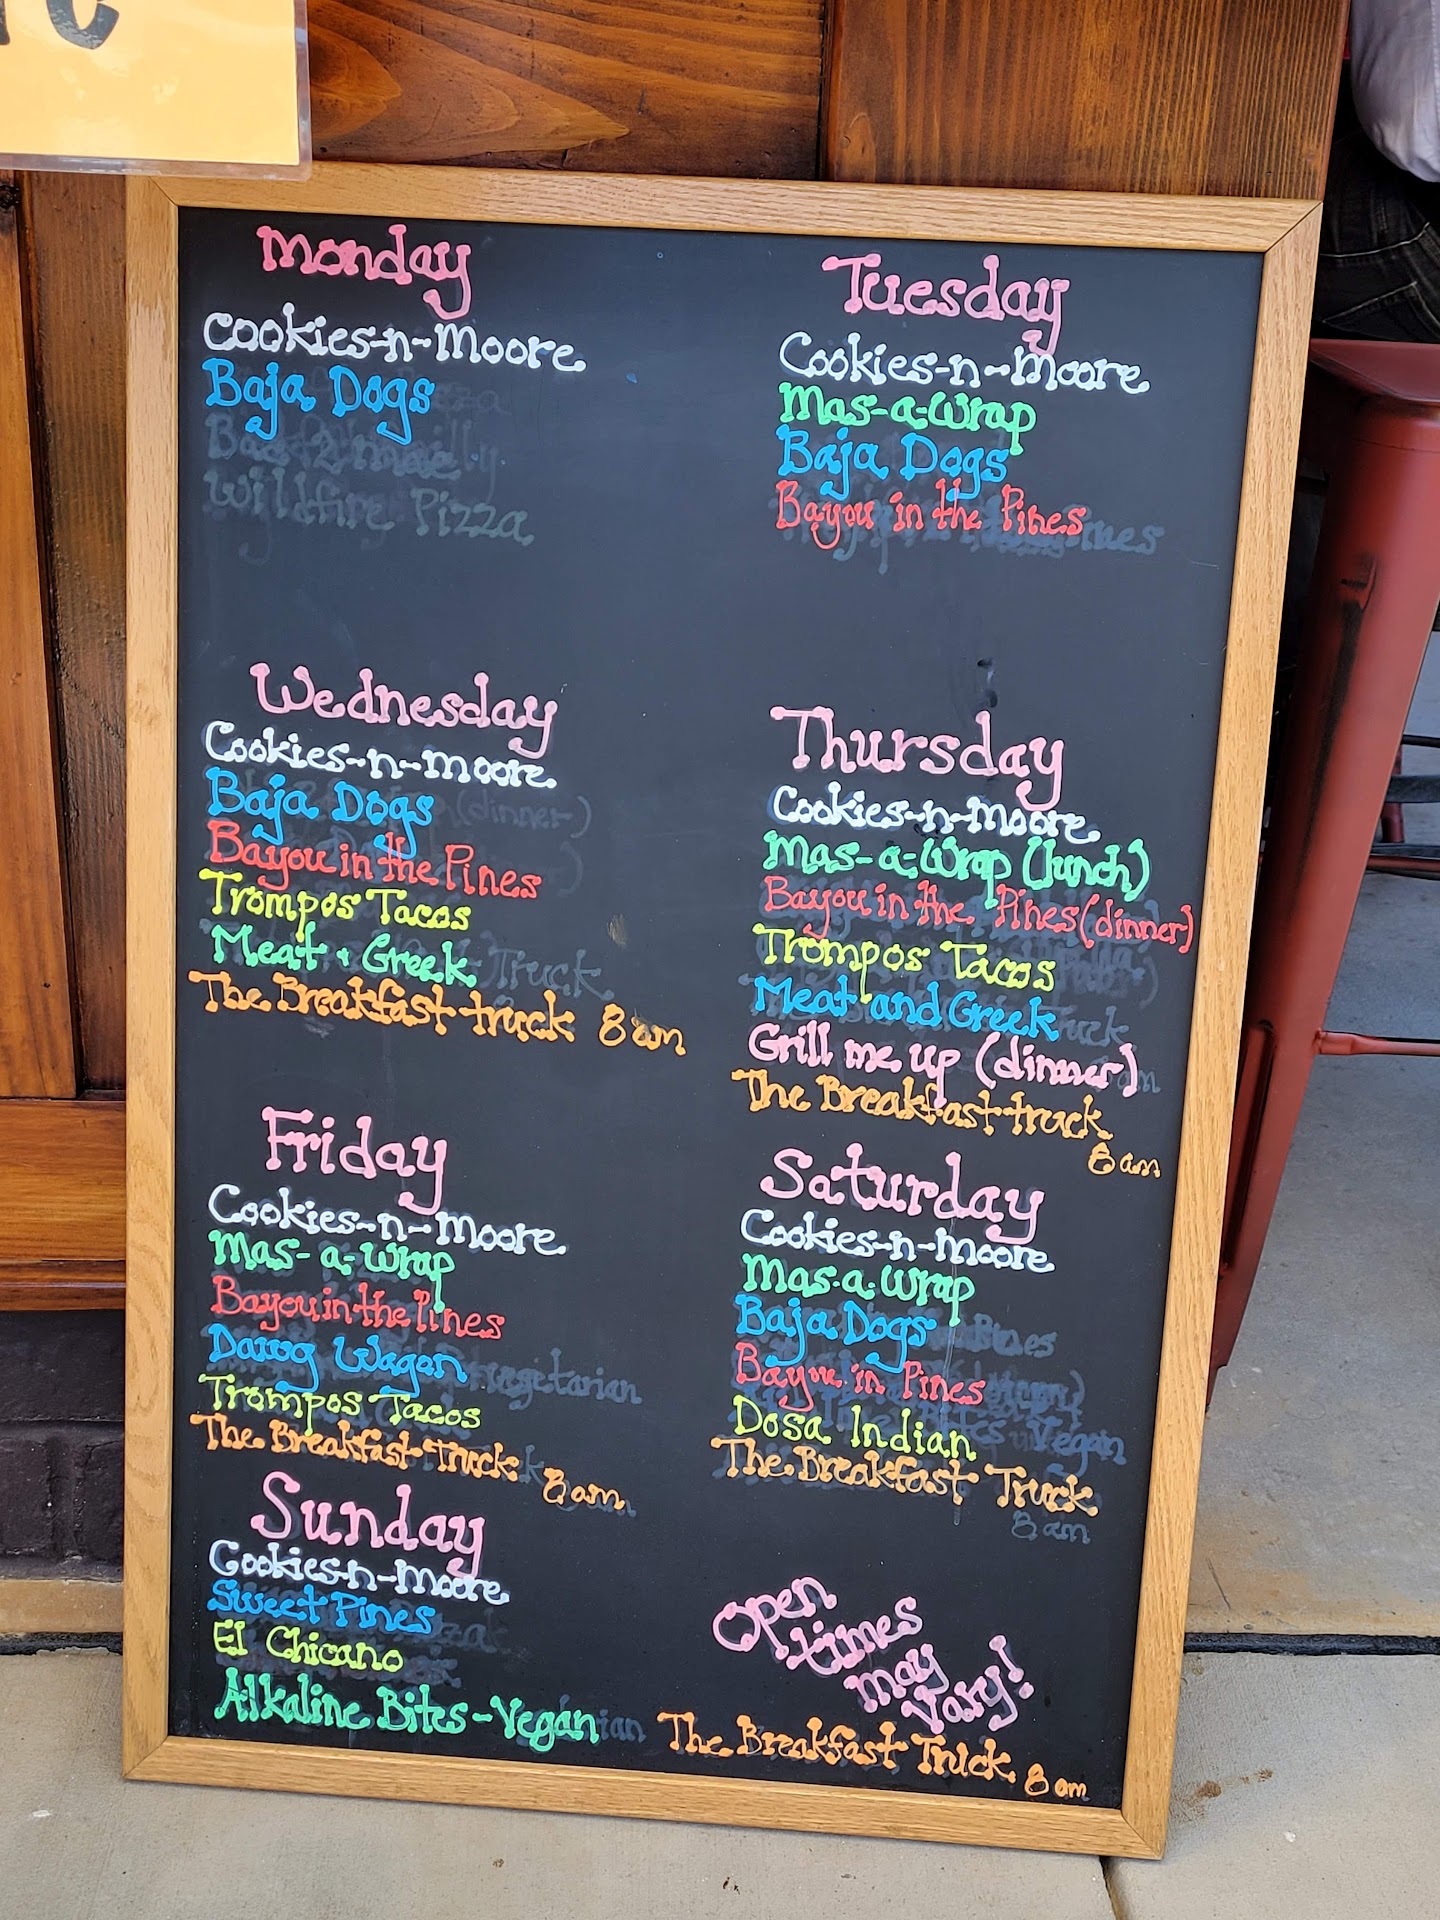 Monday
Cookies-n-Moore
Baja Dogs
Wildfire Pizza
Tuesday
Cookies-n-Moore
Mas-a-Wrap
Baja Dogs
Bayou in the Pines
Wednesday
Cookies-n-Moore
Baja Dogs (dinner)
Bayou in the Pines
Trompos Tacos
Meat & Greek Truck
The Breakfast truck 8 am
Thursday
Cookies-n-Moore
Mas-a-Wrap (lunch)
Bayou in the Pines (dinner)
Trompos Tacos
Meat and Greek
Grill me up (dinner)
The Breakfast truck
8 am
Friday
Cookies-n-Moore
Mas-a-Wrap
Bayou in the Pines
Dawg Wagon
Trompos Tacos
The Breakfast Truck 8 am
Saturday
Cookies-n-Moore
Mas-a-Wrap
Baja Dogs
Bayou in Pines
Dosa Indian Vegan
The Breakfast Truck
8 am
Sunday
Cookies-n-Moore
Sweet Pines
El Chicano
Alkaline Bites - Vegan
Open
times
may
vary!
The Breakfast Truck 8 am